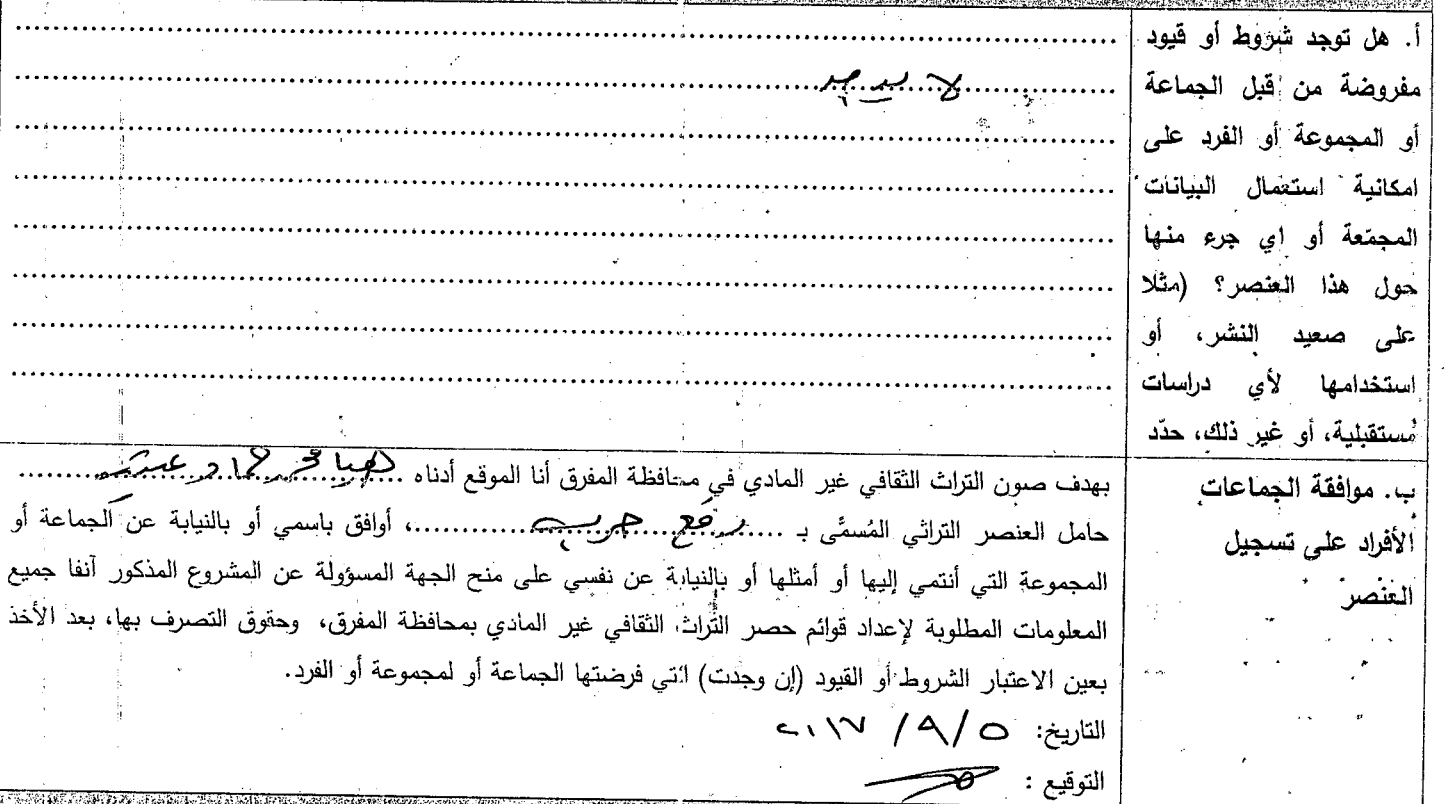 أ. هل توجد شروط أو قيود
مفروضة من قبل الجماعة
أو المجموعة أو الفرد على
امكانية استعمال البيانات
المجمّعة أو اي جرء منها
حول هذا العنصر؟ (مثلا
على صعيد النشر، أو
استخدامها لأي دراسات
مستقبلية، أو غير ذلك، حدّد
لا يوجد
ب. موافقة الجماعات
الأفراد على تسجيل
العنصر
بهدف صون التراث الثقافي غير المادي في محافظة المفرق أنا الموقع أدناه
حامل العنصر التراثي المُسمَّى بـ ...... ......، أوافق باسمي أو بالنيابة عن الجماعة أو
المجموعة التي أنتمي إليها أو أمثلها أو بالنيابة عن نفسي على منح الجهة المسؤولة عن المشروع المذكور آنفا جميع
المعلومات المطلوبة لإعداد قوائم حصر التُراث الثقافي غير المادي بمحافظة المفرق، وحقوق التصرف بها، بعد الأخذ
بعين الاعتبار الشروط أو القيود (إن وجدت) التي فرضتها الجماعة أو لمجموعة أو الفرد.
التاريخ: ٥/ ٩/ ٢٠١٧
التوقيع :